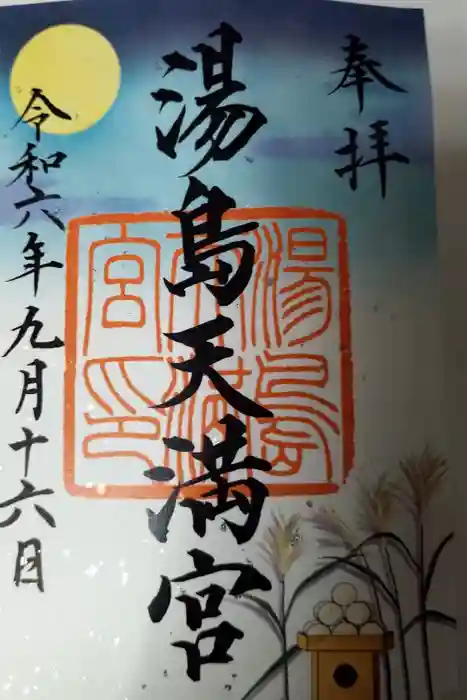 奉拝
湯島天満宮
湯島天満宮印
令和六年九月十六日